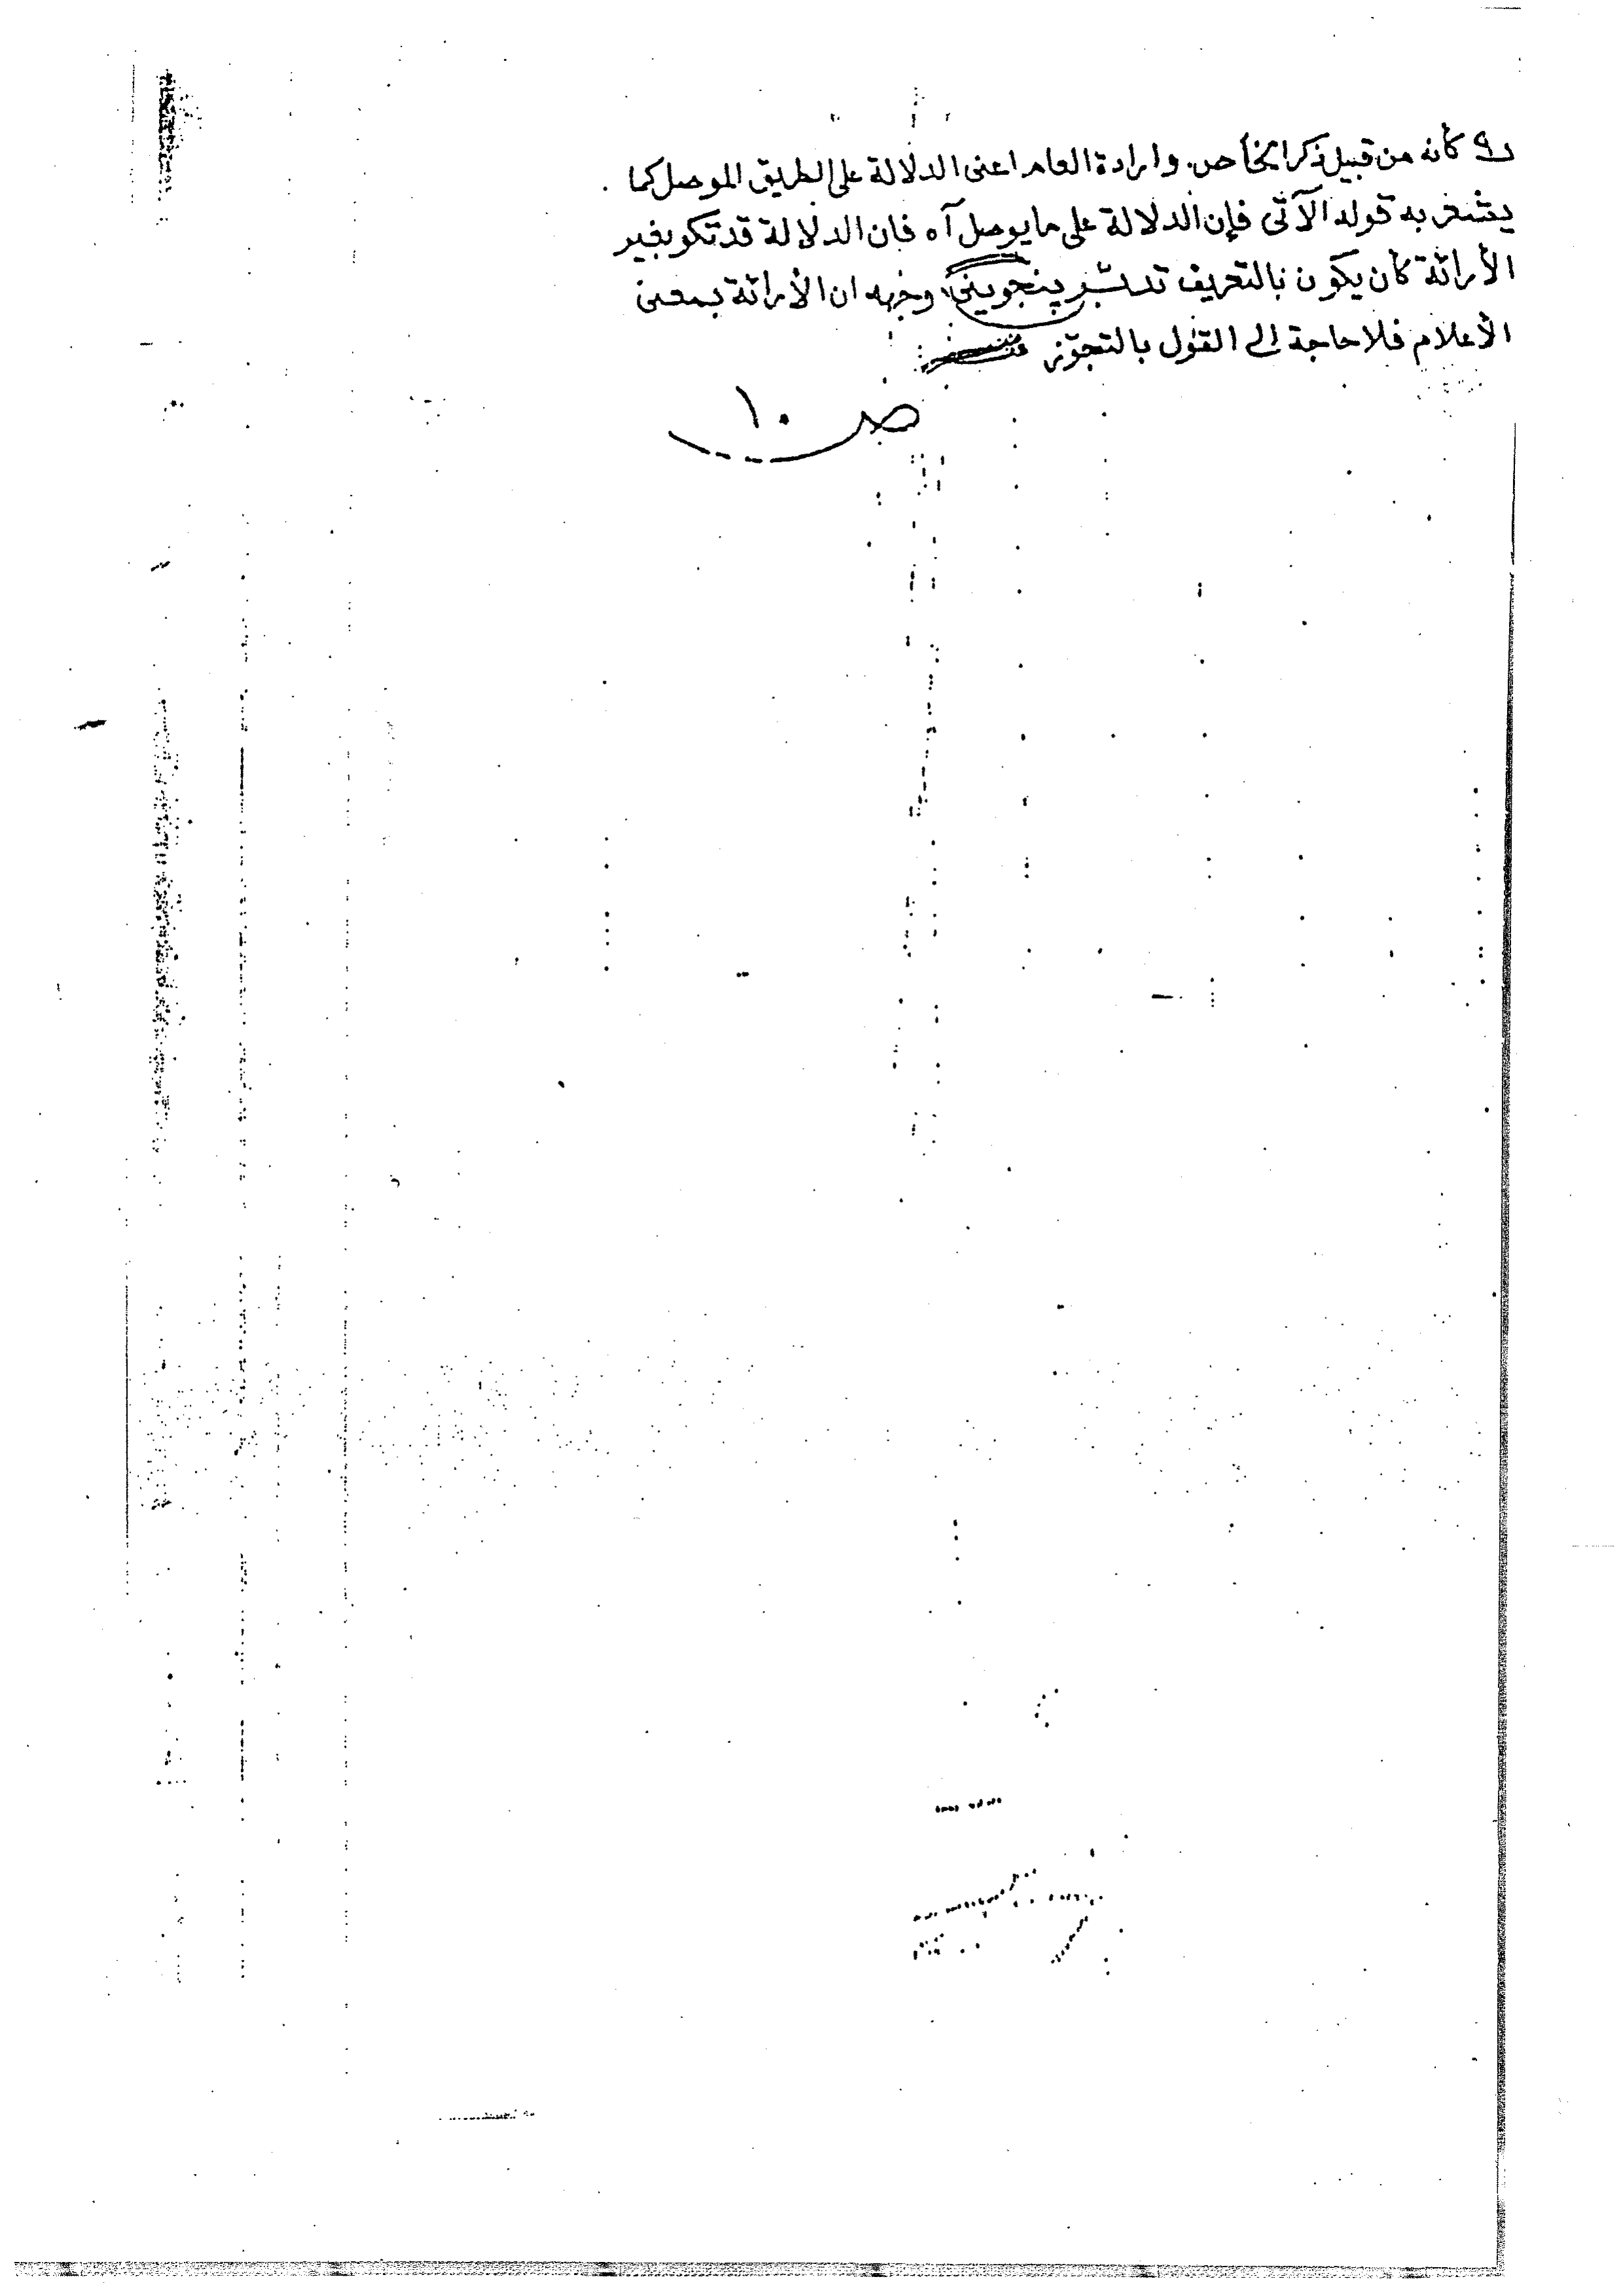 كأنه من قبيل ذكر الخاص وارادة العام اعنى الدلالة على الطريق الموصل كما
يشعر به قوله الآتى فإن الدلالة على ما يوصل آه فان الدلالة قد تكو بغير
الأرائة كان يكون بالتعريف تدبّر پنجوينى وجهه ان الأرائة بمعنى
الأعلام فلا حاجة الى القول بالتجوّز
ص ١٠